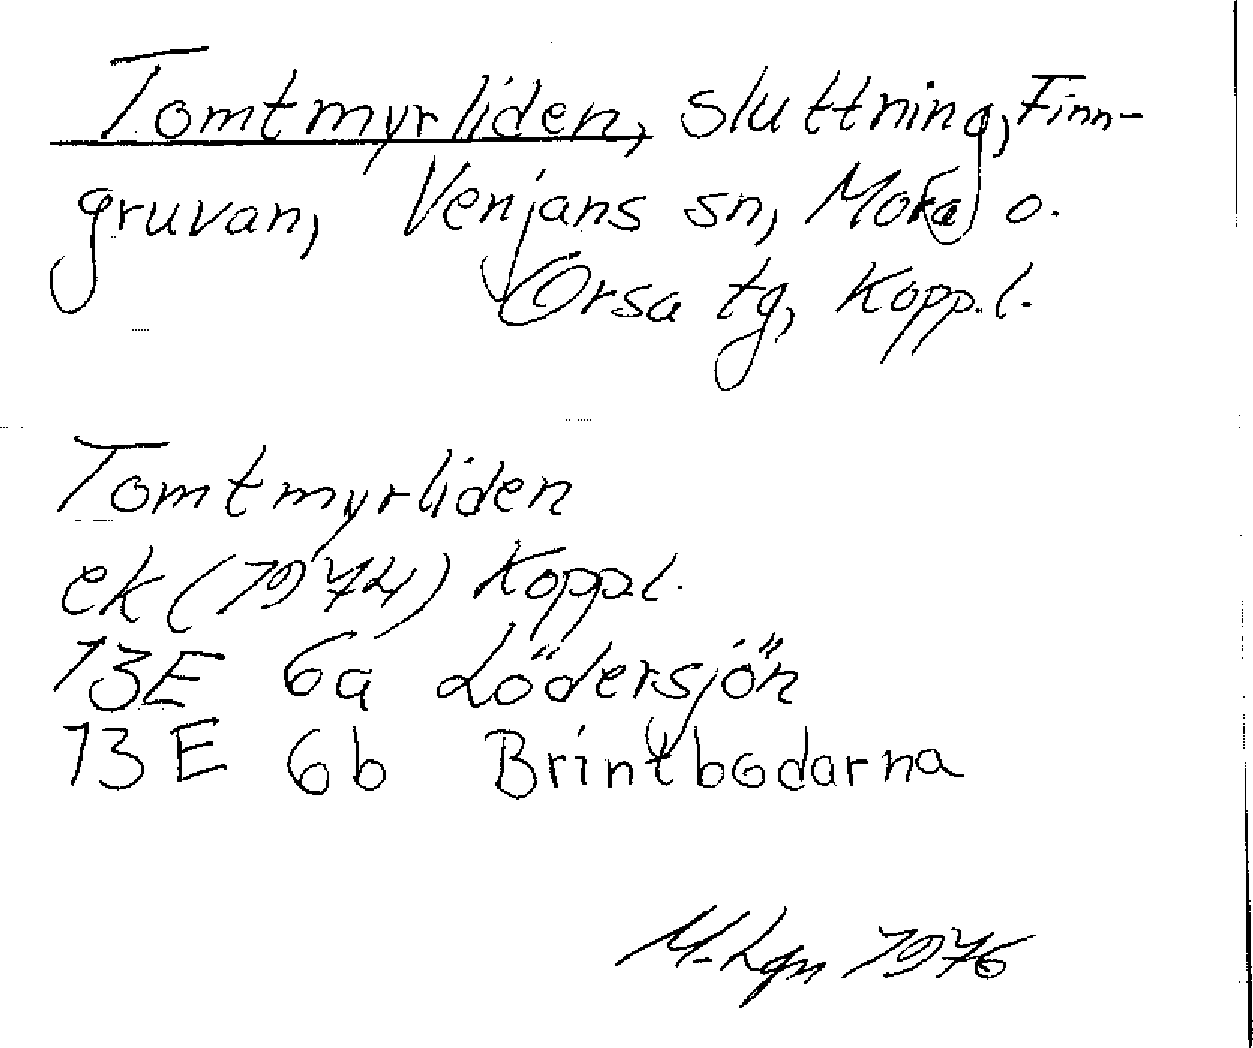 Tomtmyrliden, sluttning, Finn-
gruvan, Venjans sn, Mora o.
Orsa tg, Kopp.l.
Tomtmyrliden
ek (1974) Kopp.l.
13E 6a Lödersjön
13E 6b Brintbodarna
M. Lgn 1976